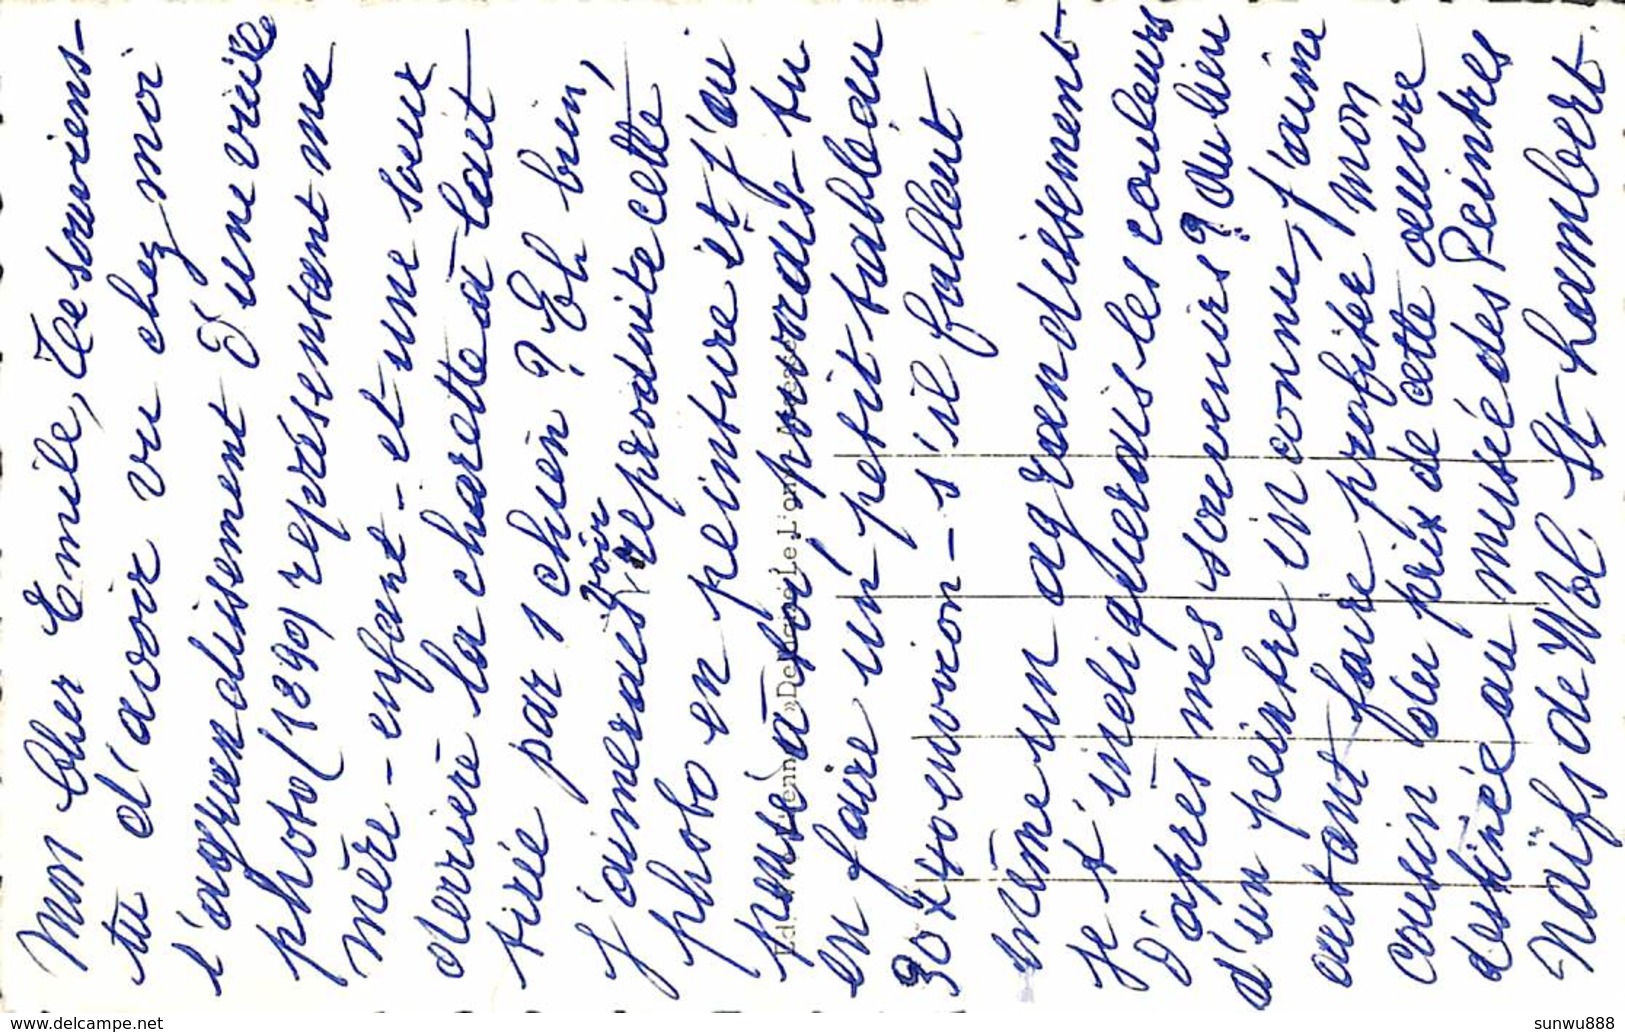 Mon Cher Emile, Te souviens-
tu d'avoir vu chez moi
l'agrandissement d'une vieille
photo (1890) représentant ma
mère - enfant - et une sœur
derrière la charette à lait
tirée par 1 chien ? Eh bien,
j'aimerais voir reproduite cette
photo en peinture et j'ai
pensé à toi pourrais-tu
en faire un petit tableau
30x40 environ - s'il fallait
même un agrandissement
je t'indiquerais les couleurs
d'après mes souvenirs ? Au lieu
d'un peintre inconnu, j'aime
autant faire profiter mon
cousin du prix de cette œuvre
destinée au musée des Peintres
Naïfs de Wol. St Lambert.
Ed. » De L'Ionne Messe
delcampe.net
sunwu888